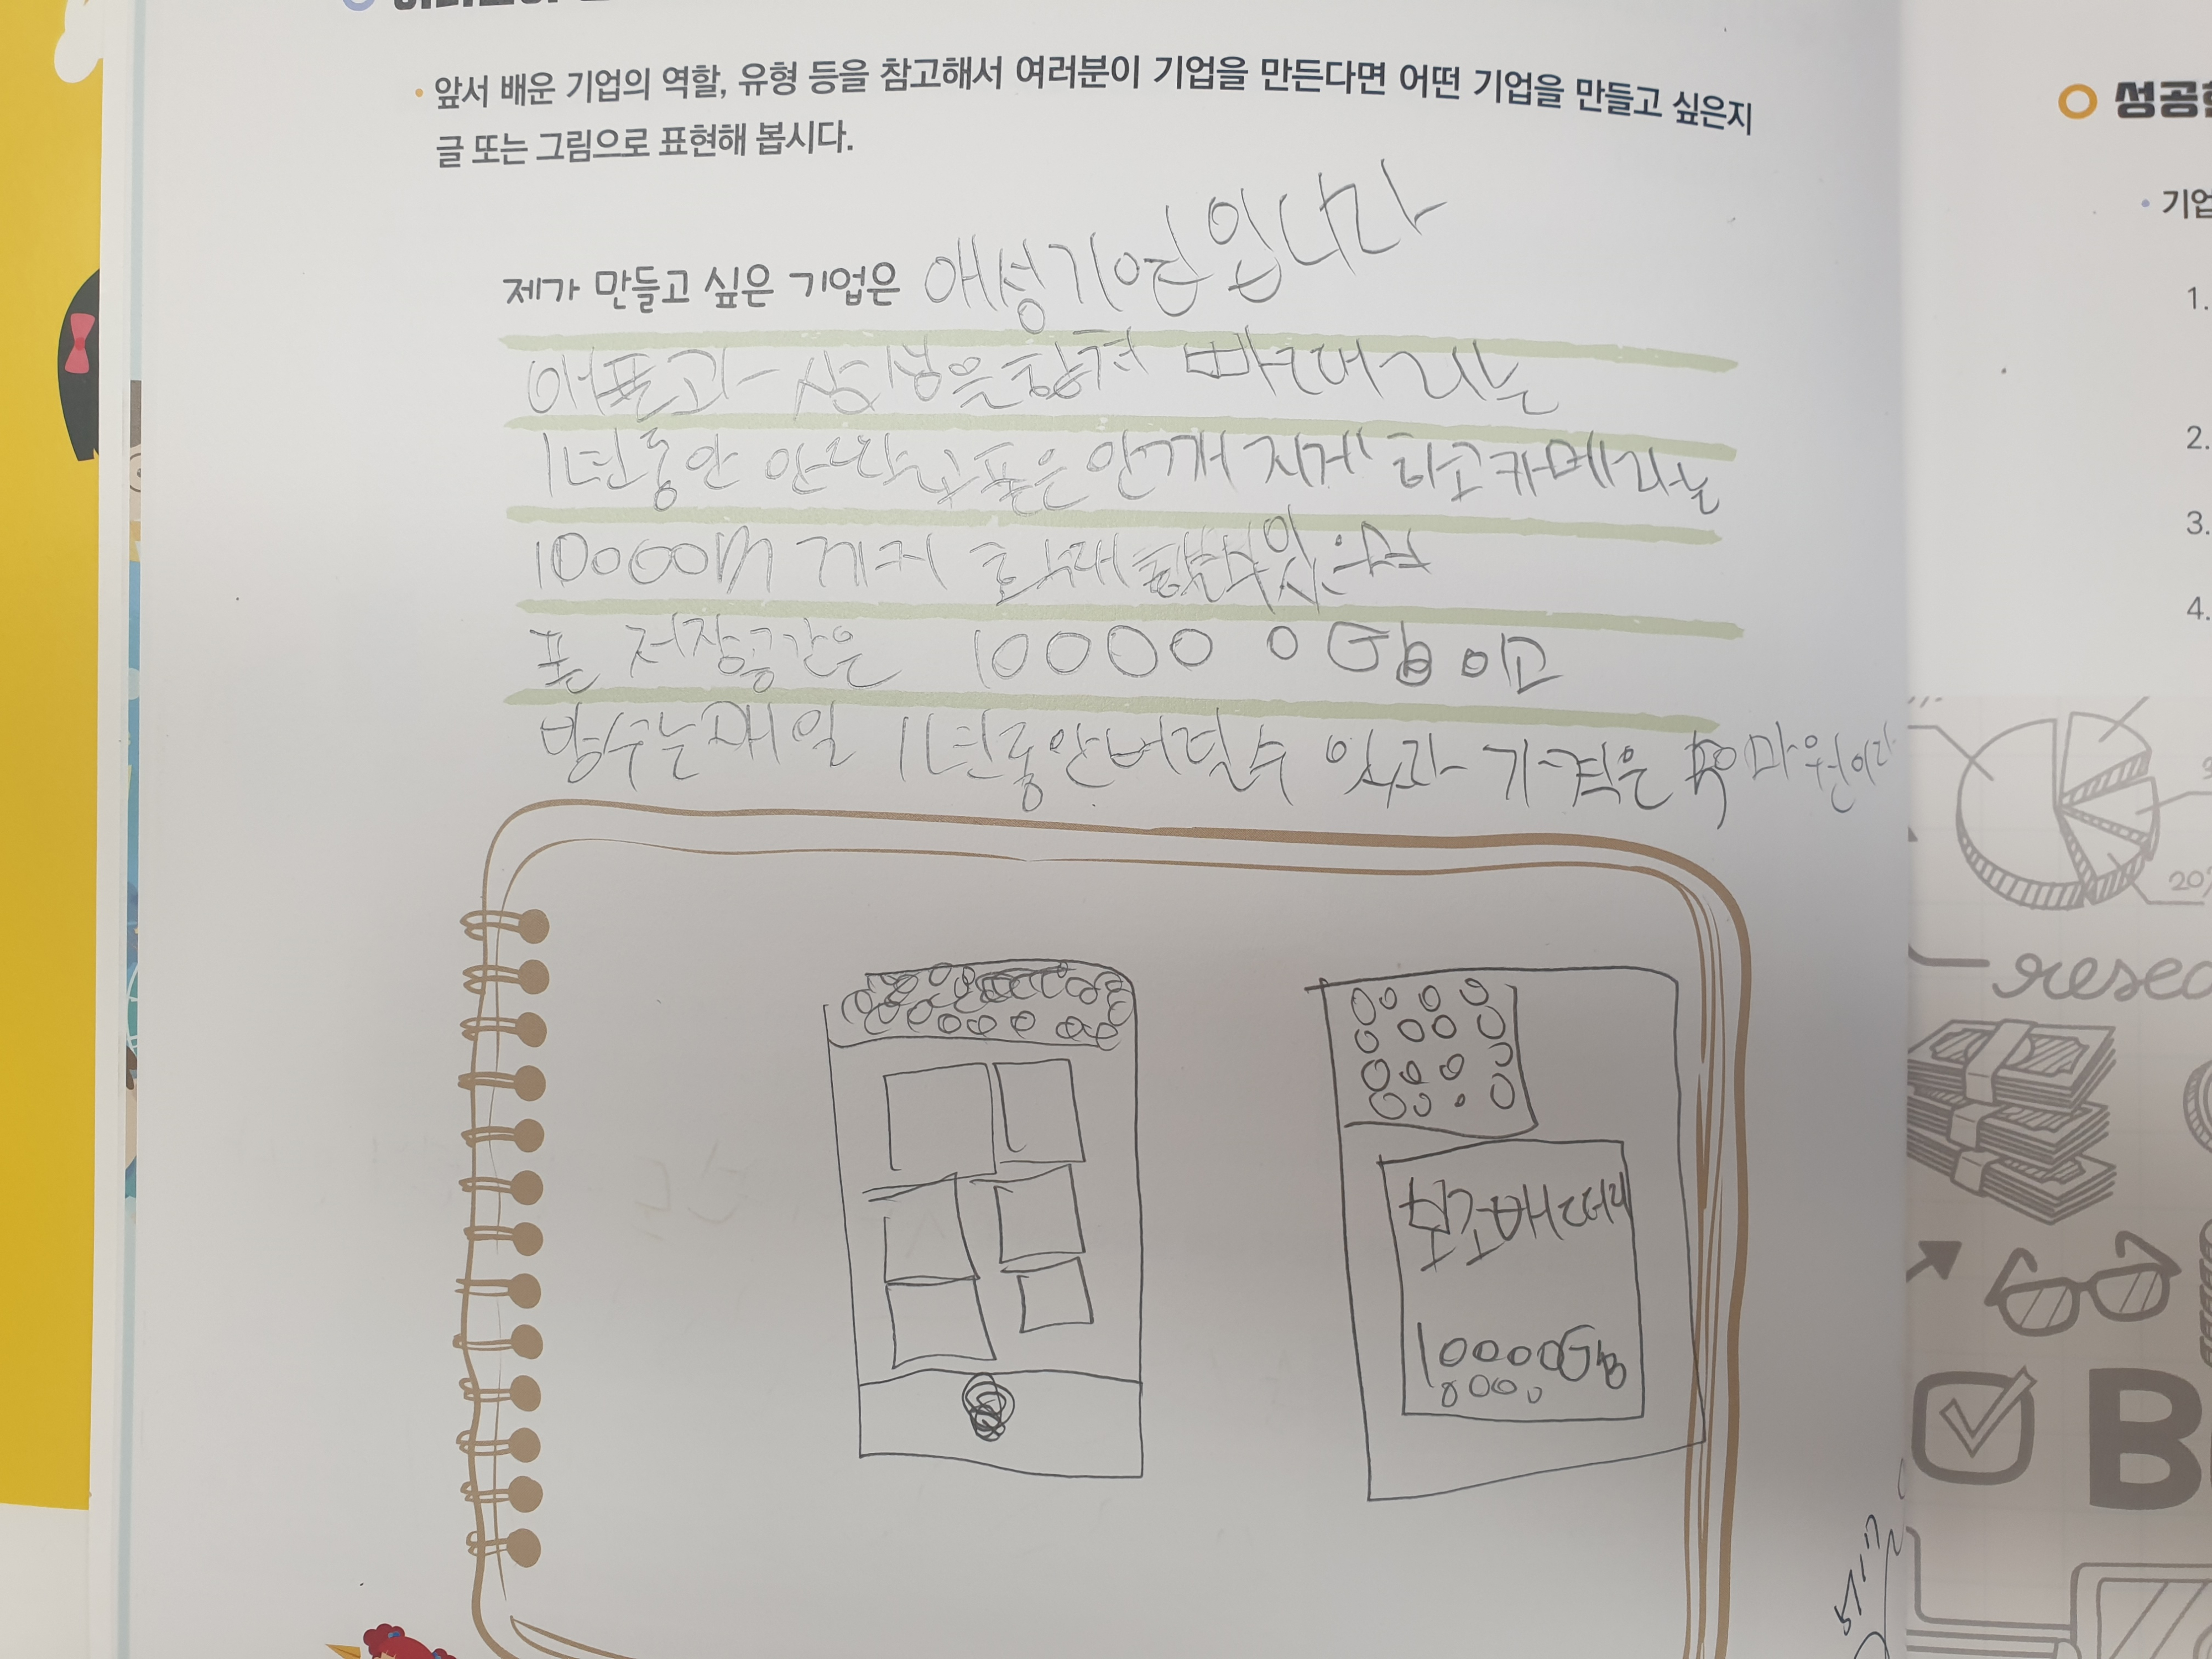 앞서 배운 기업의 역할, 유형 등을 참고해서 여러분이 기업을 만든다면 어떤 기업을 만들고 싶은지
글 또는 그림으로 표현해 봅시다.
제가 만들고 싶은 기업은 애성기업입니다
삼성은 합쳐
1년동안 안 폰은 안깨지게 하고 카메라는
10000m
폰 저장공간은 10000 0 GB 이고
방수는 매일 1년동안 버틸수 있고 가격은
보조배터리
10000GB
0000
성공
기업
1.
2.
3.
4.
20
resea
B